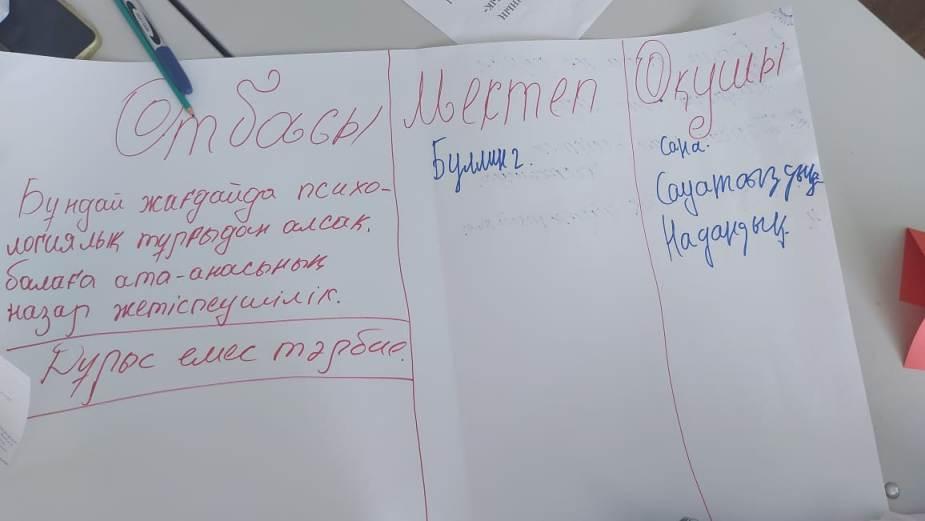 Отбасы
Бұндай жағдайда психо-
логиялық тұрғыдан алсақ,
балаға ата-анасының
назар жетіспеушілік.
Дұрыс емес тәрбие.
Мектеп
Буллинг.
Оқушы
Сана.
Сауатсыздық
Надандық.